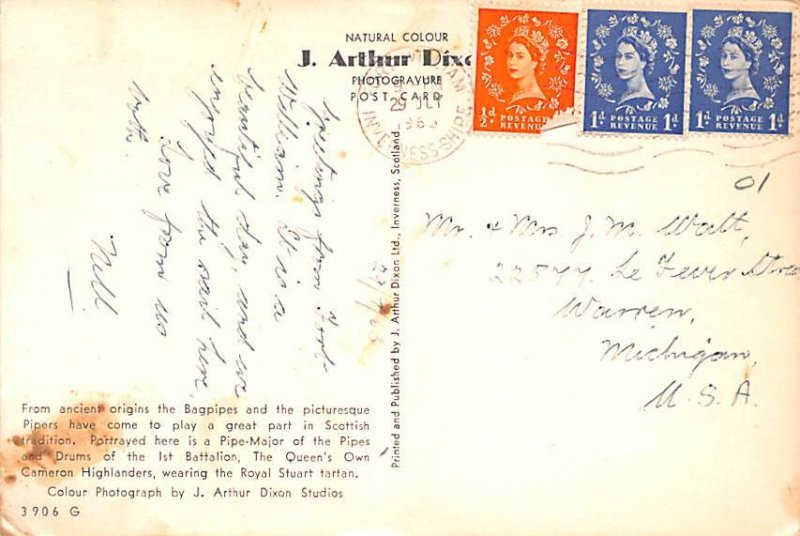 NATURAL COLOUR
J. Arthur Dixo
PHOTOGRAVURE
POST CARD
29 JLY
INVERNESS-SHIRE
1/2d
POSTAGE
REVENUE
1d POSTAGE 1d
REVENUE
1d POSTAGE 1d
REVENUE
01
Greetings from Fort
William. It is a
beautiful day, and we
enjoyed the sail here.
Love from us
both.
Nell
Mr. & Mrs J. M. Watt,
22577 Le Fever Street
Warren,
Michigan,
U.S.A.
Printed and Published by J. Arthur Dixon Ltd., Inverness, Scotland.
From ancient origins the Bagpipes and the picturesque
Pipers have come to play a great part in Scottish
tradition. Portrayed here is a Pipe-Major of the Pipes
and Drums of the 1st Battalion, The Queen's Own
Cameron Highlanders, wearing the Royal Stuart tartan.
Colour Photograph by J. Arthur Dixon Studios
3906 G